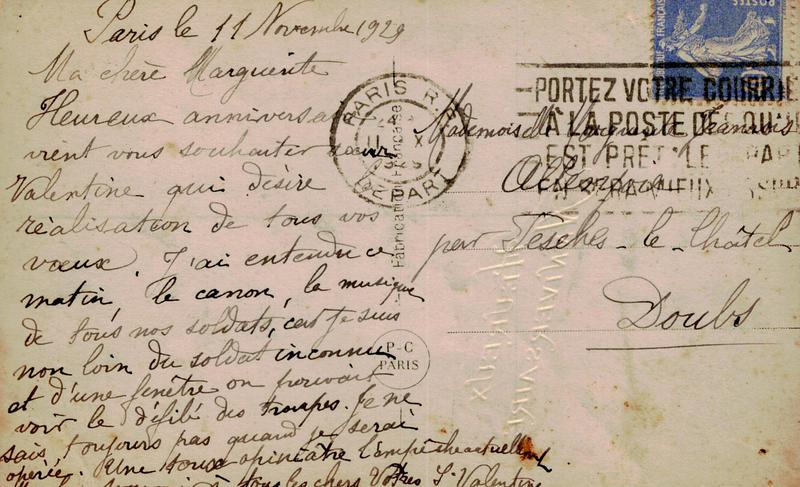 Paris le 11 Novembre 1929
Ma chère Marguerite
Heureux anniversai
vient vous souhaiter
Valentine qui désire
réalisation de tous vos
vœux. J'ai entendu ce
matin, le canon, la musique
de tous nos soldats, car je suis
non loin du soldat inconnu
et d'une fenêtre on pouvait
voir le défilé des troupes. Je ne
sais toujours pas quand je serai
opérée. Une toux opiniâtre l'empêche actuellement
à tous les chers Vôtres Sr Valentine
POSTES
PARIS R.P.
DEPART
PORTEZ VOTRE COURRIE
A LA POSTE DE
EST LE
Mademoiselle Marguerite
par Tesches-le-Châtel
Doubs
Fabrication Française
P-C
PARIS
ANNIVERSAIRE